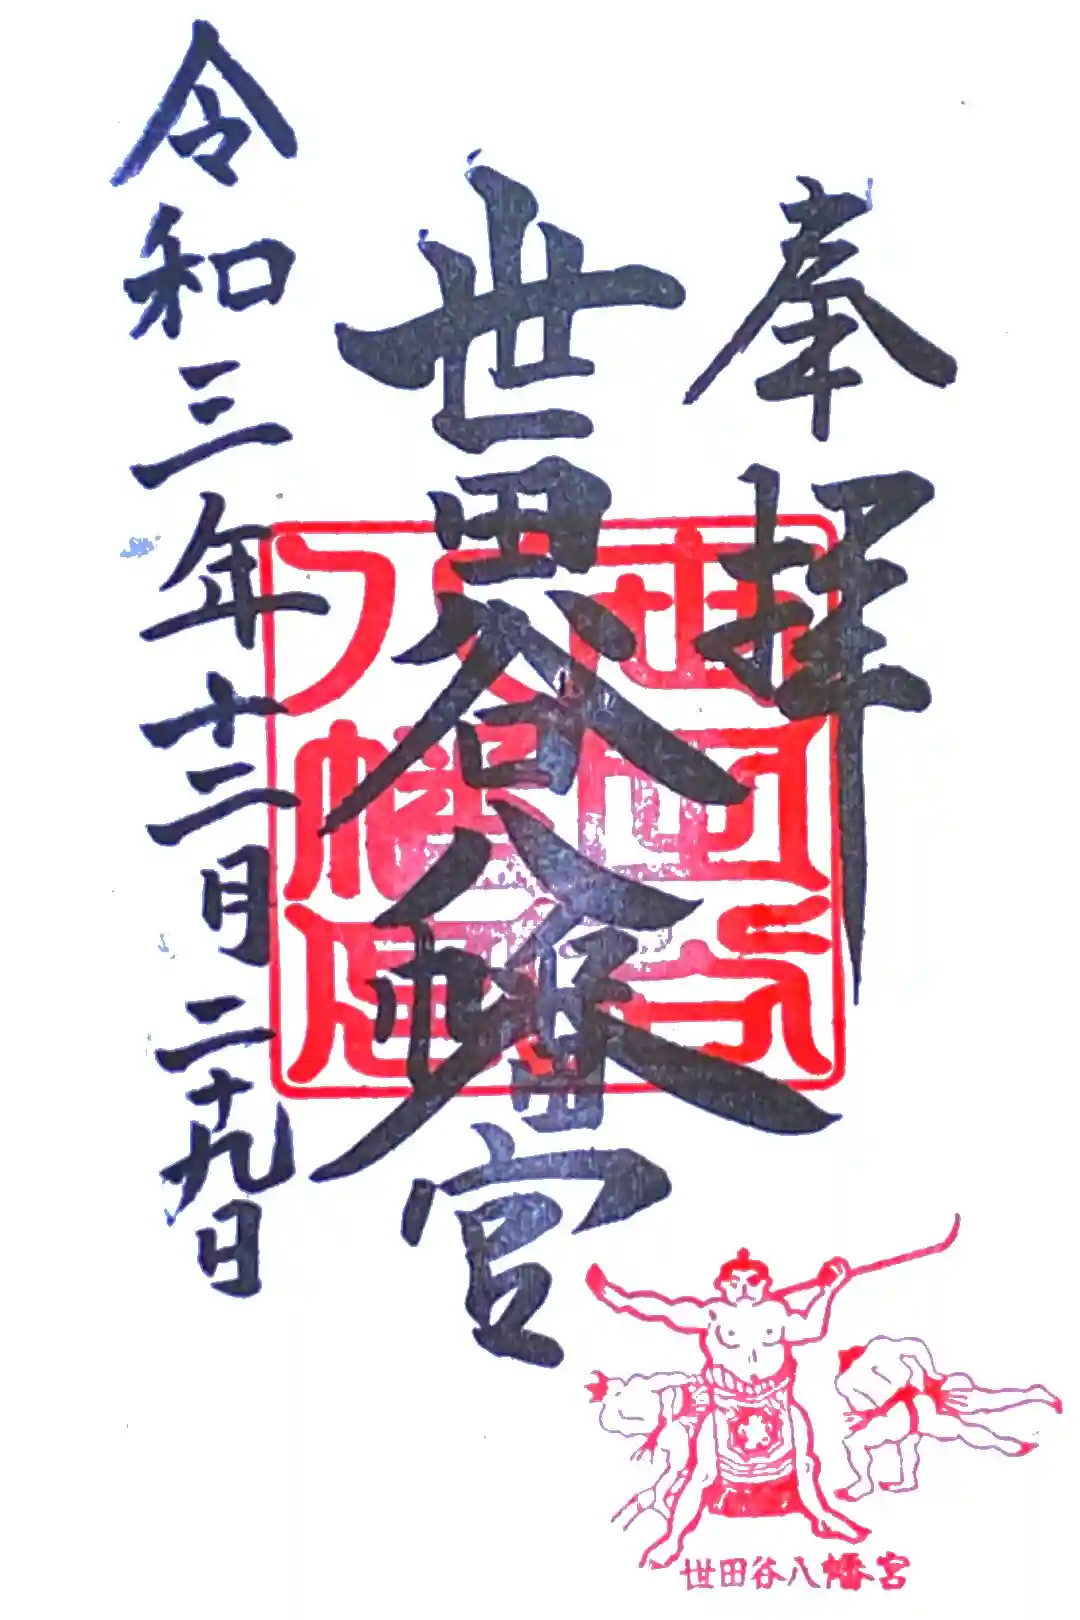 奉拝
世田谷八幡宮
世田谷八幡宮
令和三年十二月二十九日
世田谷八幡宮